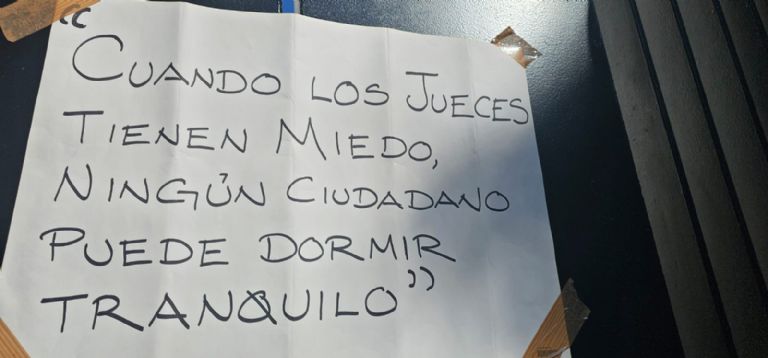 "CUANDO LOS JUECES
TIENEN MIEDO,
NINGÚN CIUDADANO
PUEDE DORMIR
TRANQUILO"